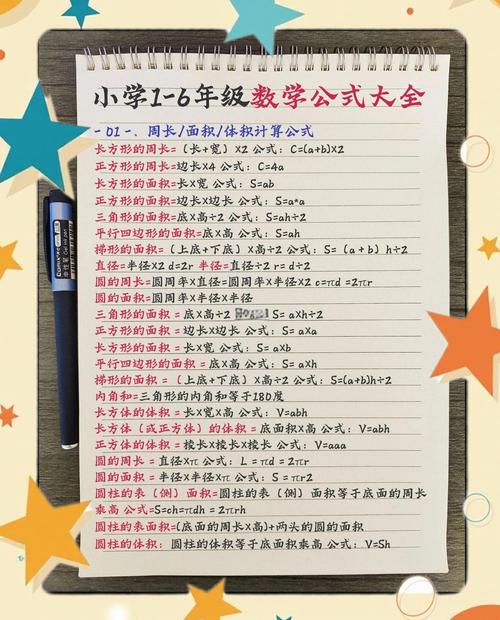 小学1-6年级数学公式大全
-01-、周长/面积/体积计算公式
长方形的周长=(长+宽)X2 公式：C=(a+b)X2
正方形的周长=边长X4 公式：C=4a
长方形的面积=长X宽 公式：S=ab
正方形的面积=边长X边长 公式：S=a*a
三角形的面积=底X高÷2 公式：S=ah÷2
平行四边形的面积=底X高 公式：S=ah
梯形的面积=(上底+下底)X高÷2 公式：S=(a+b)h÷2
直径=半径X2 d=2r 半径=直径÷2 r=d÷2
圆的周长=圆周率X直径=圆周率X半径X2 c=πd=2πr
圆的面积=圆周率X半径X半径
三角形的面积=底X高÷2 S=aXh÷2
正方形的面积=边长X边长 公式：S=aXa
长方形的面积=长X宽 公式：S=aXb
平行四边形的面积=底X高 公式：S=aXh
梯形的面积=(上底+下底)X高÷2 公式：S=(a+b)h÷2
内角和=三角形的内角和等于180度
长方体的体积=长X宽X高 公式：V=abh
长方体(或正方体)的体积=底面积X高 公式：V=abh
正方体的体积=棱长X棱长X棱长 公式：V=aaa
圆的周长=直径Xπ 公式：L=πd=2πr
圆的面积=半径X半径Xπ 公式：S=πr2
圆柱的表(侧)面积=圆柱的表(侧)面积等于底面的周长
乘高 公式=S=ch=πdh=2πrh
圆柱的表面积=(底面的周长X高)+两头的圆的面积
圆柱的体积：圆柱的体积等于底面积乘高 公式：V=Sh